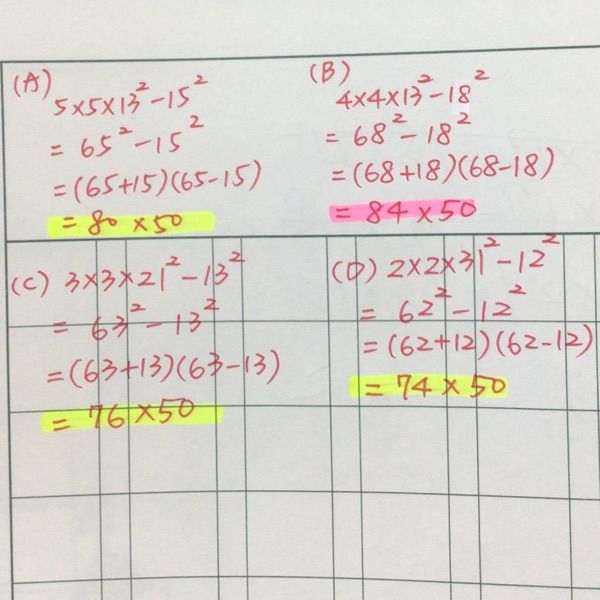 (A)
5×5×13²-15²
= 65²-15²
=(65+15)(65-15)
= 80 ×50
(B)
4×4×13²-18²
= 68²-18²
=(68+18)(68-18)
= 84 ×50
(C) 3×3×21²-13²
= 63²-13²
=(63+13)(63-13)
= 76 ×50
(D) 2×2×31²-12²
= 62²-12²
=(62+12)(62-12)
= 74 × 50